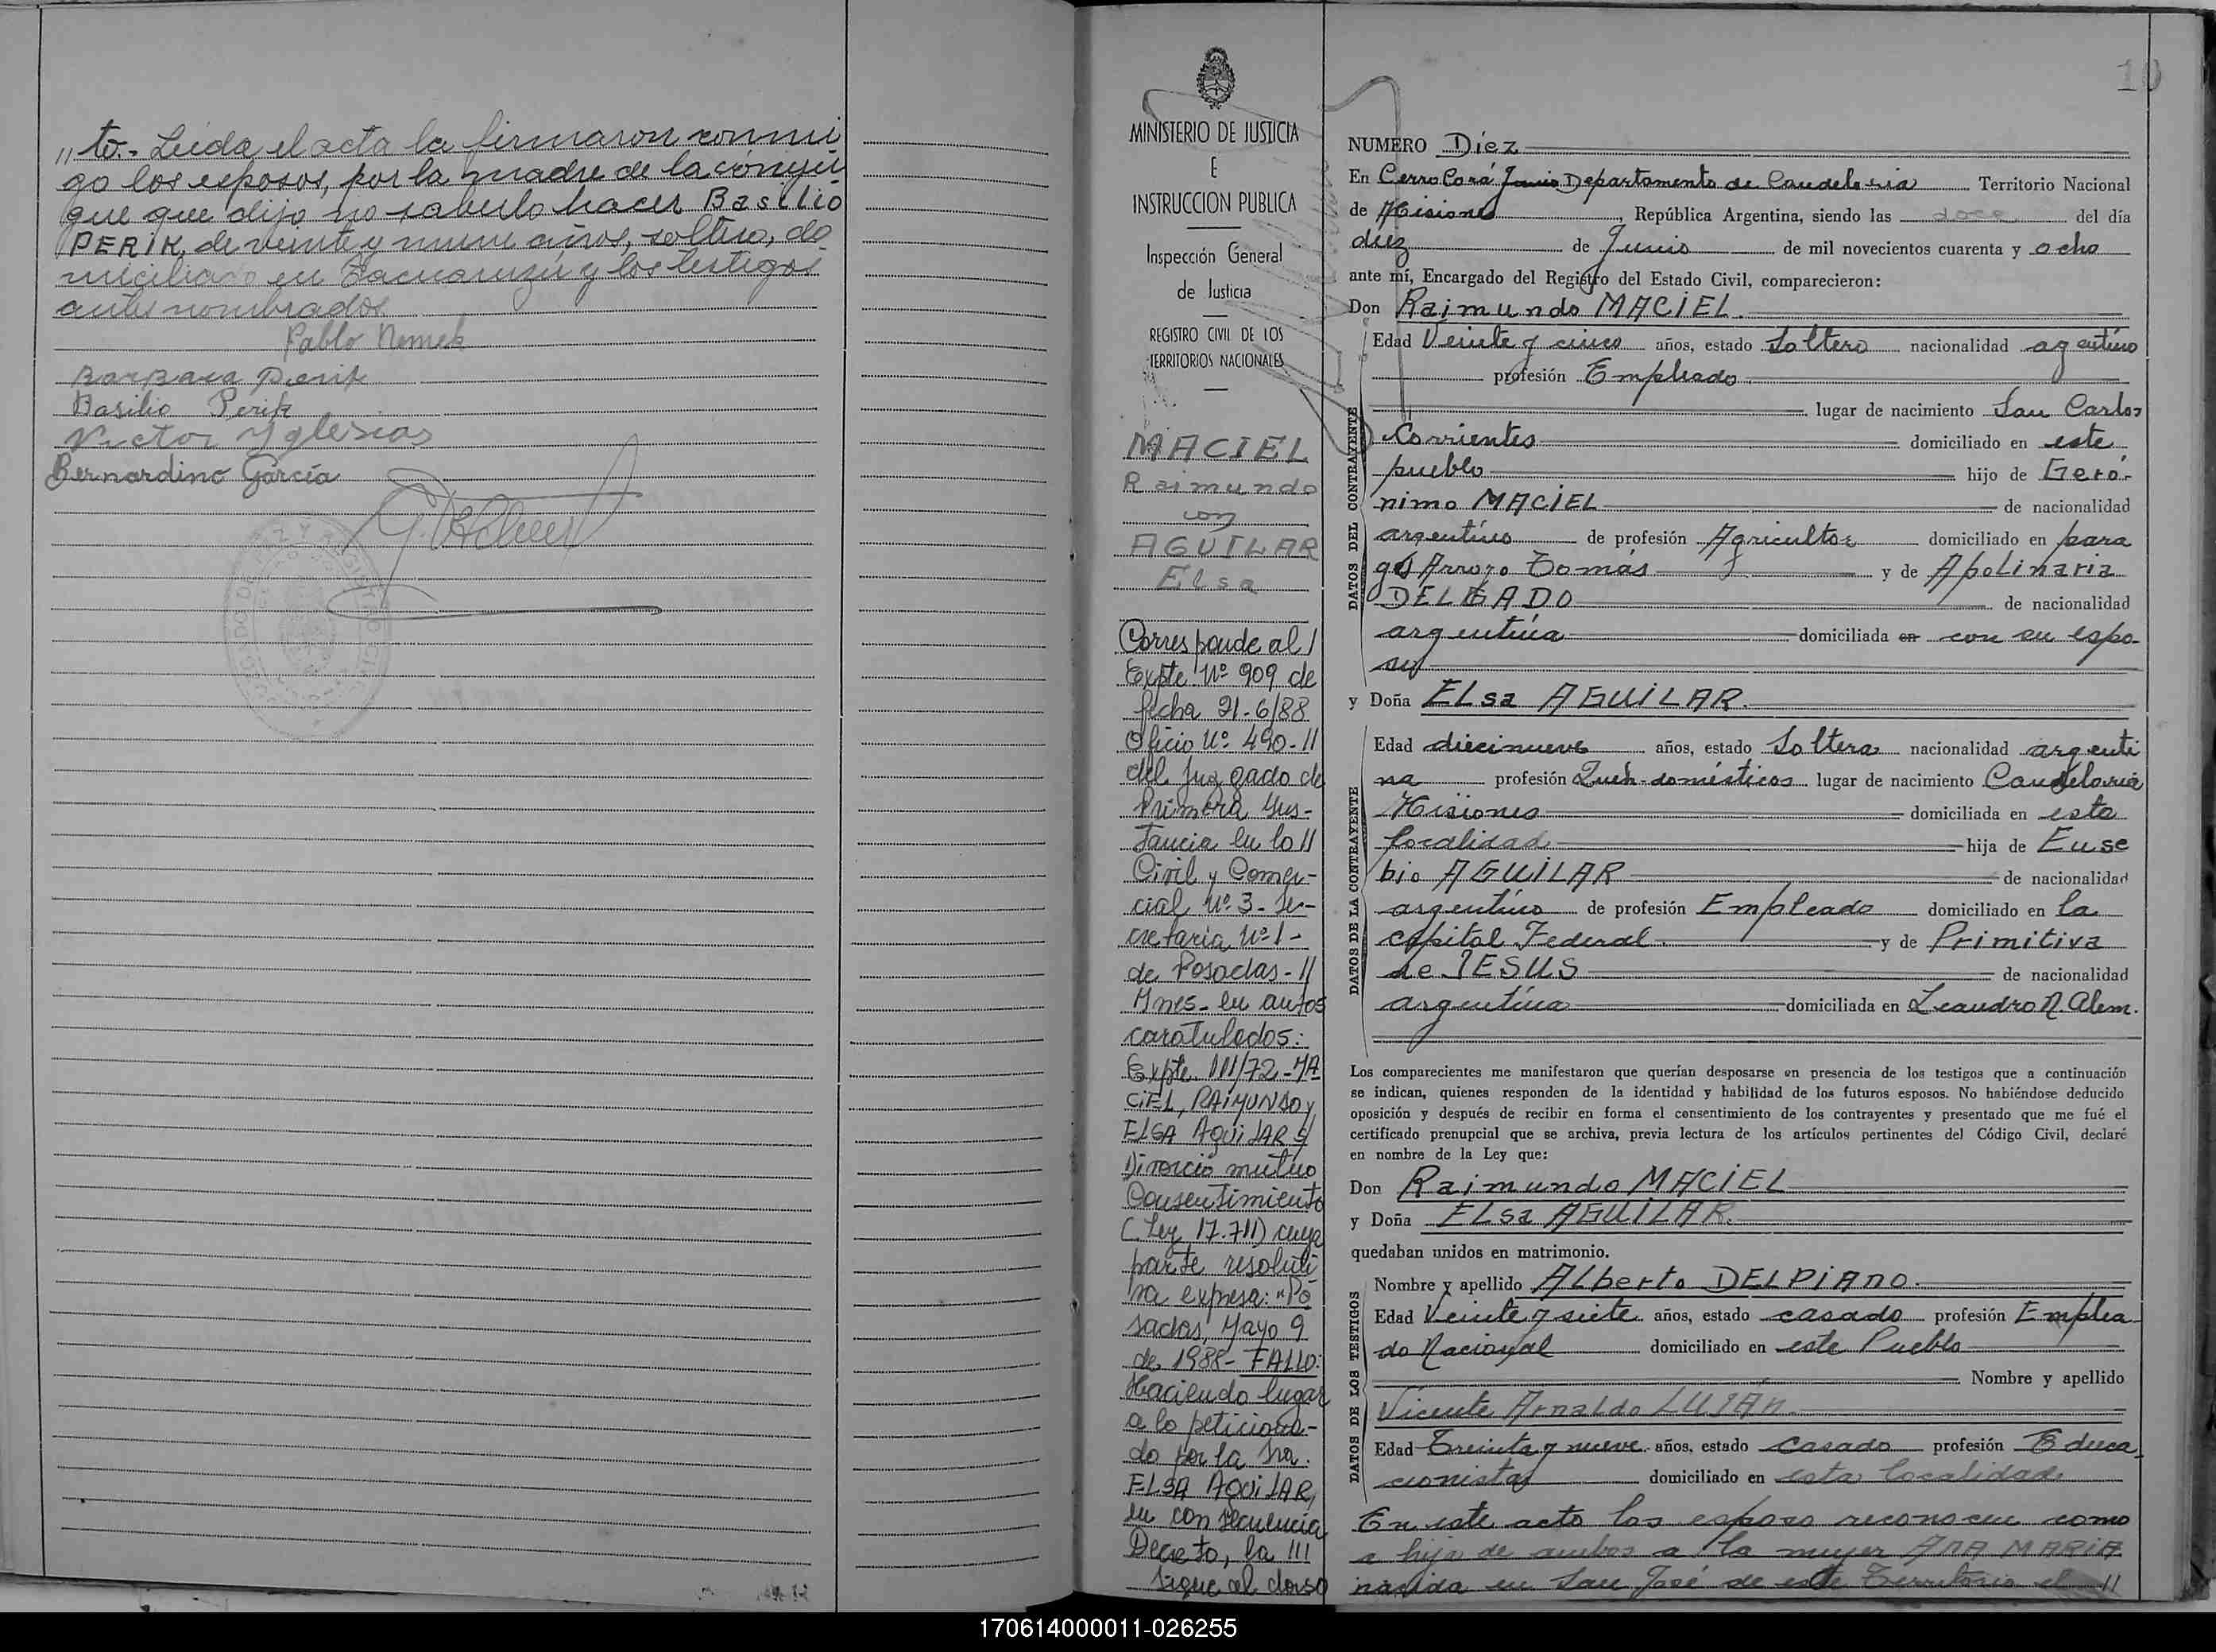 " to.- Leida el acta la firmaron conmi
go los esposos, por la madre de la cónyu
gue que dijo no saberlo hacer Basilio
PERIK, de veinte y nueve años, soltero, do
miciliado en Tacuaruzú y los testigos
antes nombrados
Pablo Nemek
Barbara Perik
Basilio Perik
Victor Yglesias
Bernardino García
MINISTERIO DE JUSTICIA
E
INSTRUCCION PUBLICA
Inspección General
de Justicia
REGISTRO CIVIL DE LOS
TERRITORIOS NACIONALES
MACIEL
Raimundo
con
AGUILAR
Elsa
Corresponde al /
Expte. Nº 909 de
fecha 21-6/88
Oficio Nº 490-//
del Juzgado de
Primera Ins-
tancia en lo //
Civil y Comer-
cial Nº 3- Se-
cretaría Nº 1-
de Posadas-//
Mnes- en autos
caratulados:
Expte. 111/72-MA
CIEL, RAIMUNDO y
ELSA AGUILAR S/
Divorcio mutuo
Consentimiento
(Ley 17.711) cuya
parte resoluti
va expresa: "Po
sadas, Mayo 9
de 1988- FALLO:
Haciendo lugar
a lo peticiona-
do por la Sra.
ELSA AGUILAR,
en consecuencia
Decreto, la ///
Sigue al dorso
10
NUMERO Diez
En Cerro Corá Junio Departamento de Candelaria Territorio Nacional
de Misiones, República Argentina, siendo las doce del día
diez de Junio de mil novecientos cuarenta y ocho
ante mí, Encargado del Registro del Estado Civil, comparecieron:
Don Raimundo MACIEL.
DATOS DEL CONTRAYENTE
Edad Veinte y cinco años, estado Soltero nacionalidad argentino
profesión Empleado.
lugar de nacimiento San Carlos
Corrientes domiciliado en este
pueblo hijo de Geró-
nimo MACIEL de nacionalidad
argentino de profesión Agricultor domiciliado en para
ge Arroyo Tomás y de Apolinaria
DELGADO de nacionalidad
argentina domiciliada en con su espo-
so
y Doña Elsa AGUILAR.
DATOS DE LA CONTRAYENTE
Edad diecinueve años, estado Soltera nacionalidad argenti
na profesión Queh-domésticos lugar de nacimiento Candelaria
Misiones domiciliada en esta
localidad hija de Euse
bio AGUILAR de nacionalidad
argentino de profesión Empleado domiciliado en la
capital Federal. y de Primitiva
de JESUS de nacionalidad
argentina domiciliada en Leandro N. Alem.
Los comparecientes me manifestaron que querían desposarse en presencia de los testigos que a continuación
se indican, quienes responden de la identidad y habilidad de los futuros esposos. No habiéndose deducido
oposición y después de recibir en forma el consentimiento de los contrayentes y presentado que me fué el
certificado prenupcial que se archiva, previa lectura de los artículos pertinentes del Código Civil, declaré
en nombre de la Ley que:
Don Raimundo MACIEL
y Doña ELsa AGUILAR.
quedaban unidos en matrimonio.
DATOS DE LOS TESTIGOS
Nombre y apellido Alberto DELPIANO.
Edad Veinte y siete años, estado casado profesión Emplea
do Nacional domiciliado en este Pueblo
Nombre y apellido
Vicente Arnaldo LUJÁN.
Edad Treinta y nueve años, estado Casado profesión Educa
cionista domiciliado en esta localidad
En este acto los esposo reconocen como
a hijo de ambos a la mujer ANA MARIA
nacida en San José de este Territorio el //
170614000011-026255